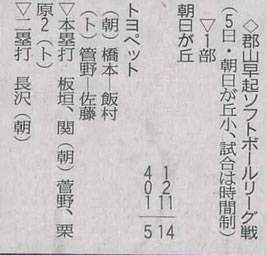 ◇郡山早起ソフトボールリーグ戦
(5日・朝日が丘小、試合は時間制)
▽1部
朝日が丘 1 2 11 14
トヨペット 4 0 1 5
(朝)橋本―飯村
(ト)管野―佐藤
▽本塁打 板垣、関(朝)菅野、栗
原2(ト)
▽二塁打 長沢(朝)